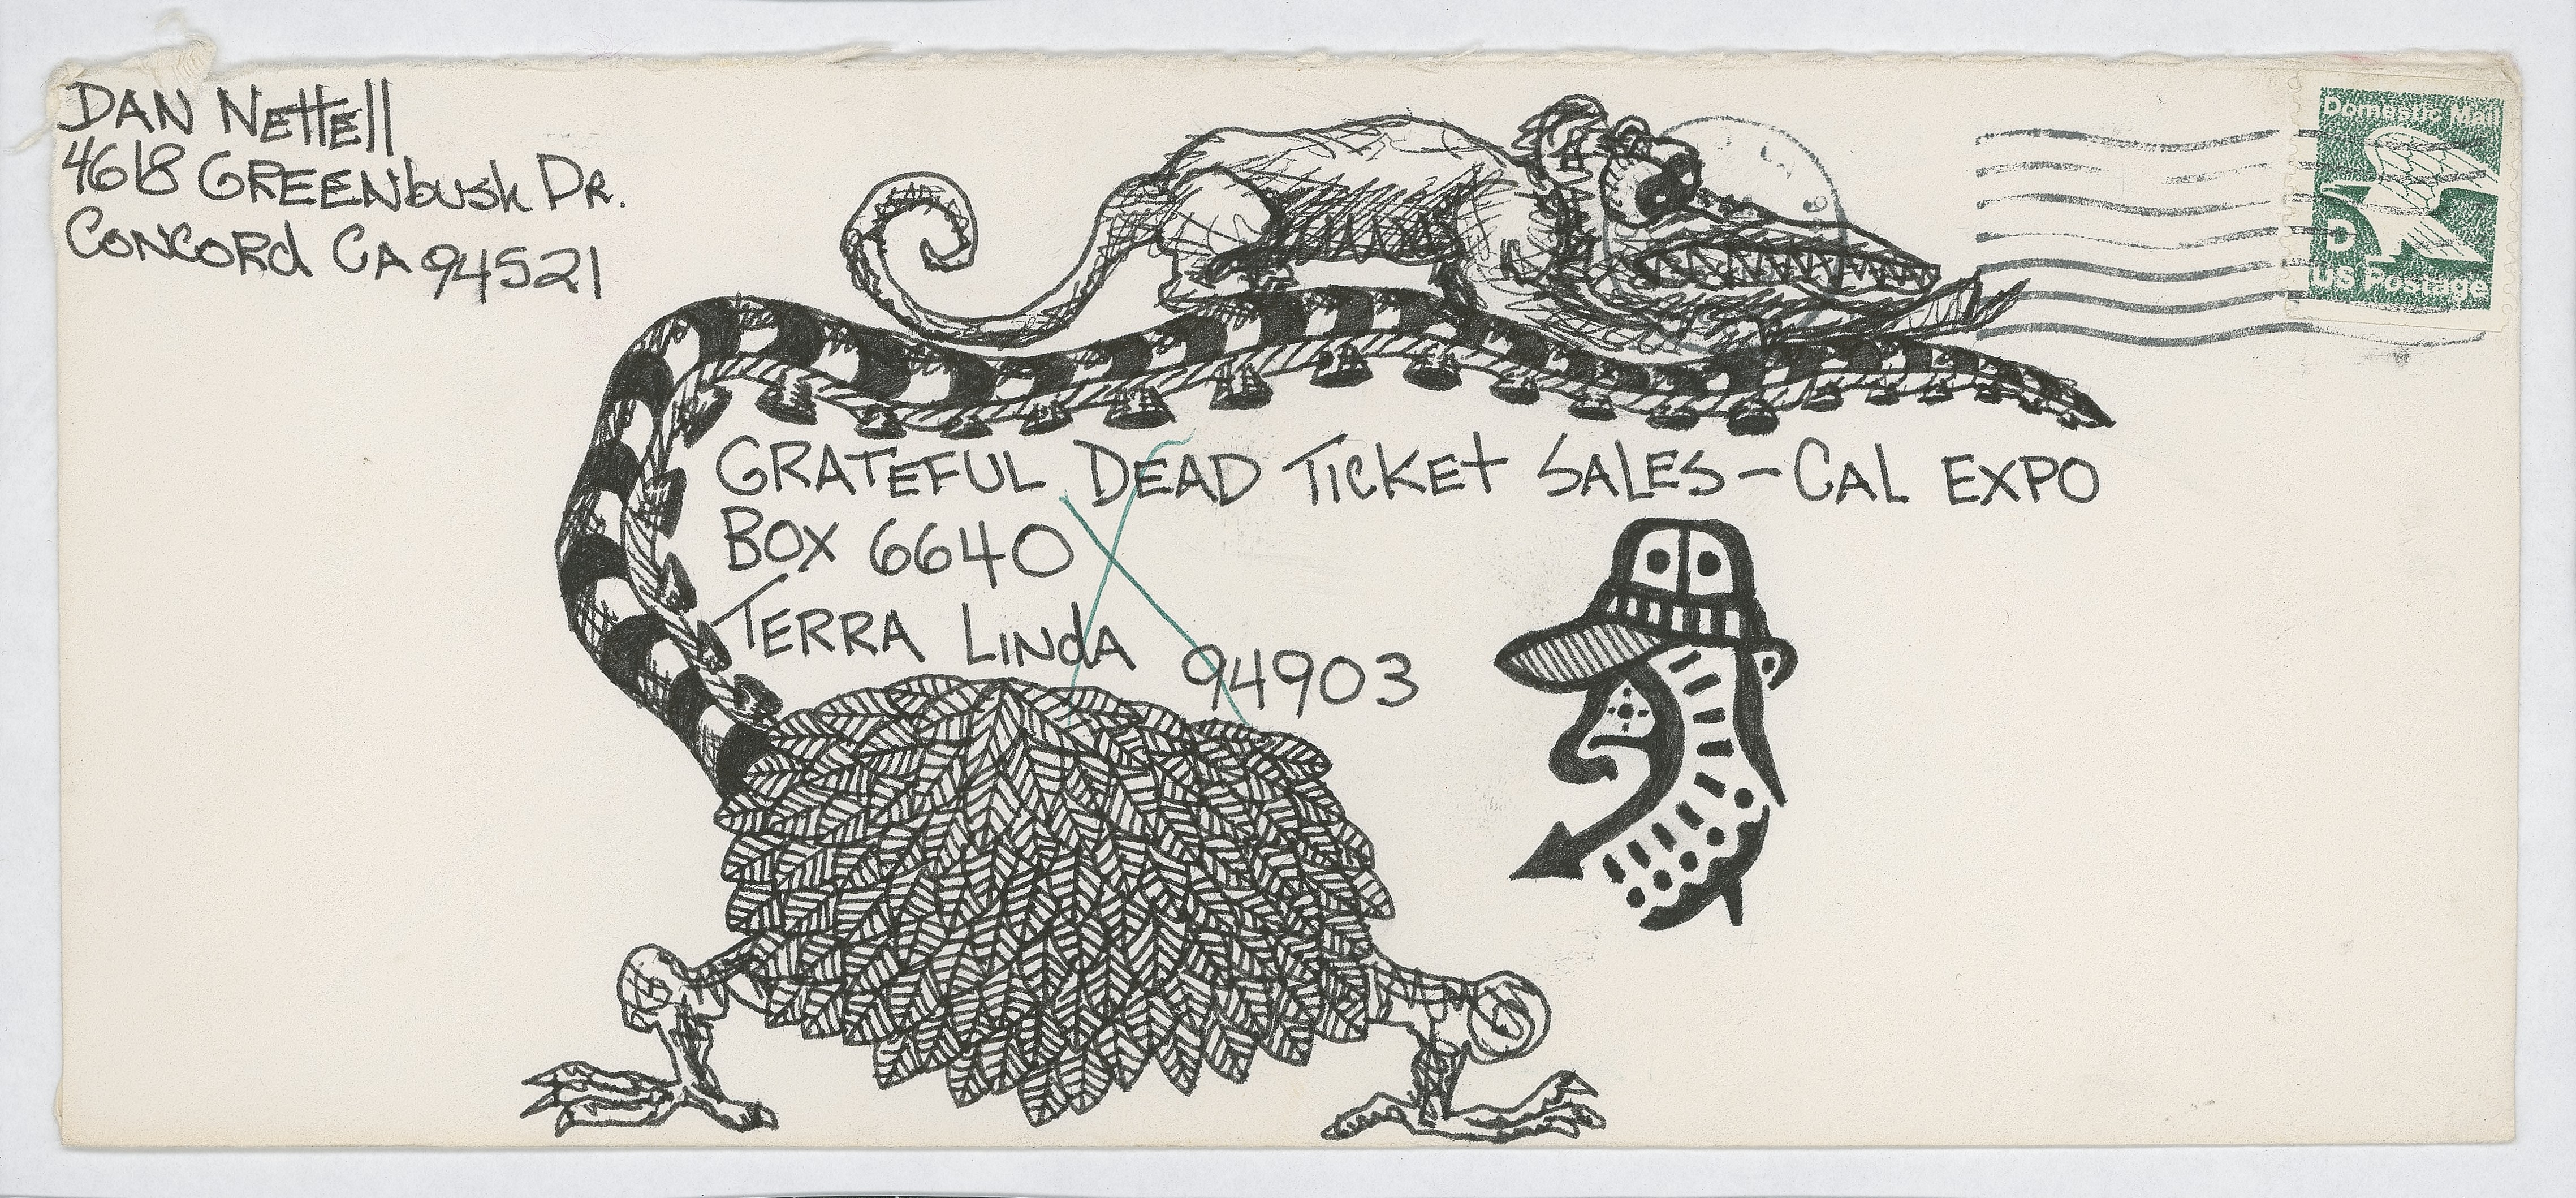 DAN NEttEll
4618 GREENbusk DR.
CONCORd CA 94521
Domestic Mail
D
US Postage
GRATEFUL DEAD TICKEt SALES - CAL EXPO
BOX 6640
TERRA LINdA 94903